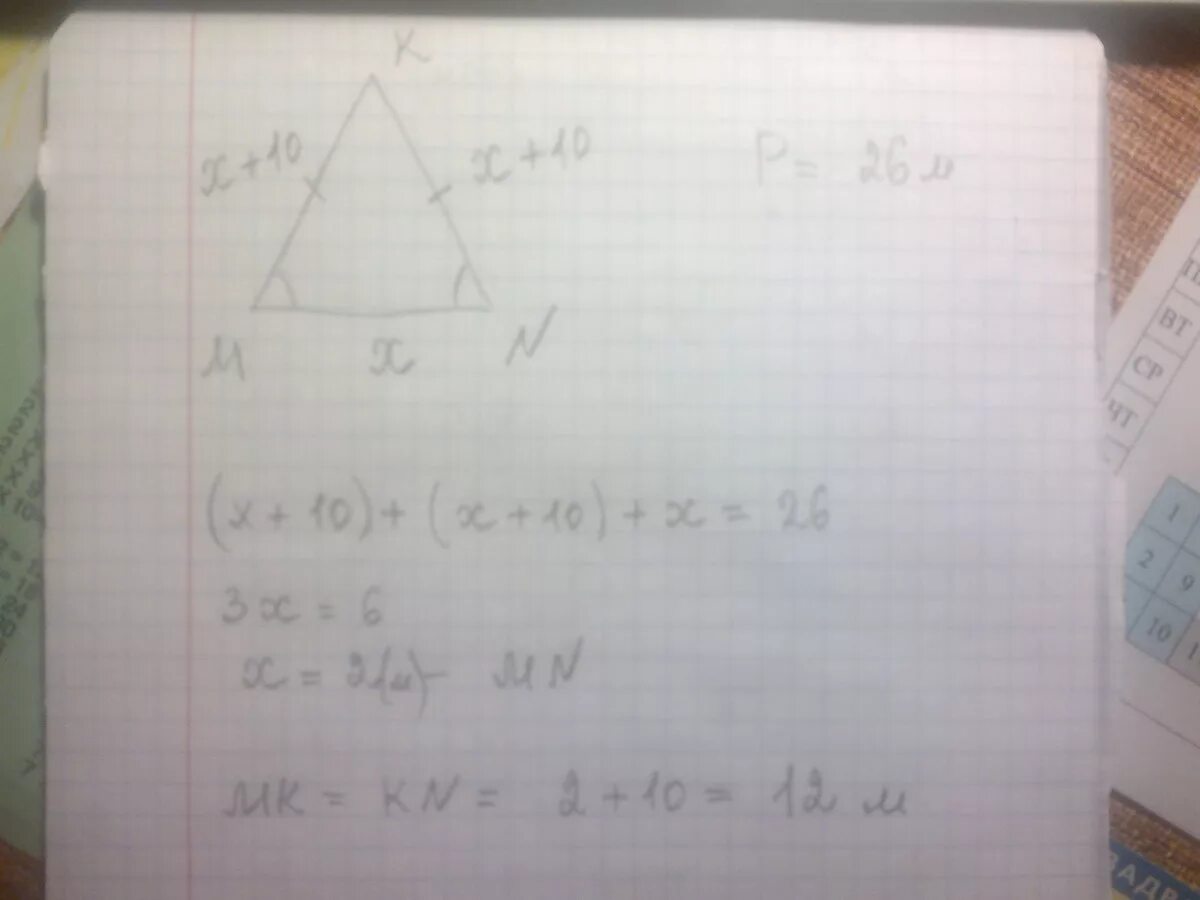 K
x+10
x+10
P= 26м
M
x
N
(x+10)+(x+10)+x=26
3x=6
x=2(м)- MN
MK = KN = 2+10 = 12 м
ВТ
СР
ЧТ
1
2
9
10
ЗАДР